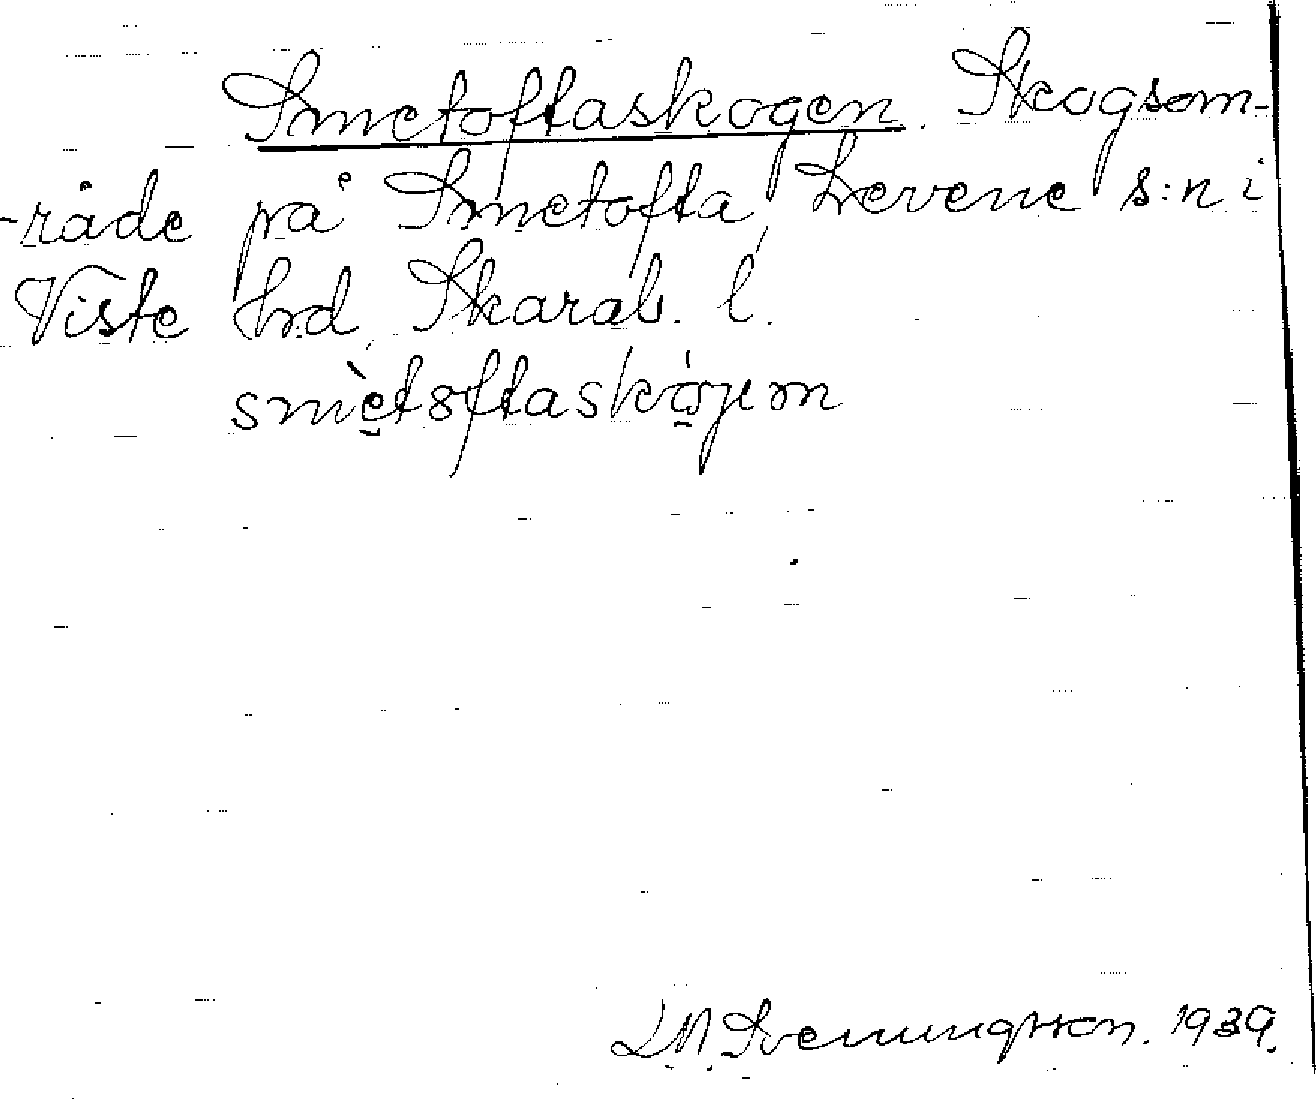 Smetoftaskogen. Skogsom-
-råde på Smetofta, Levene s:n i
Viste hrd, Skarab. l.
L M Svenungsson. 1939.